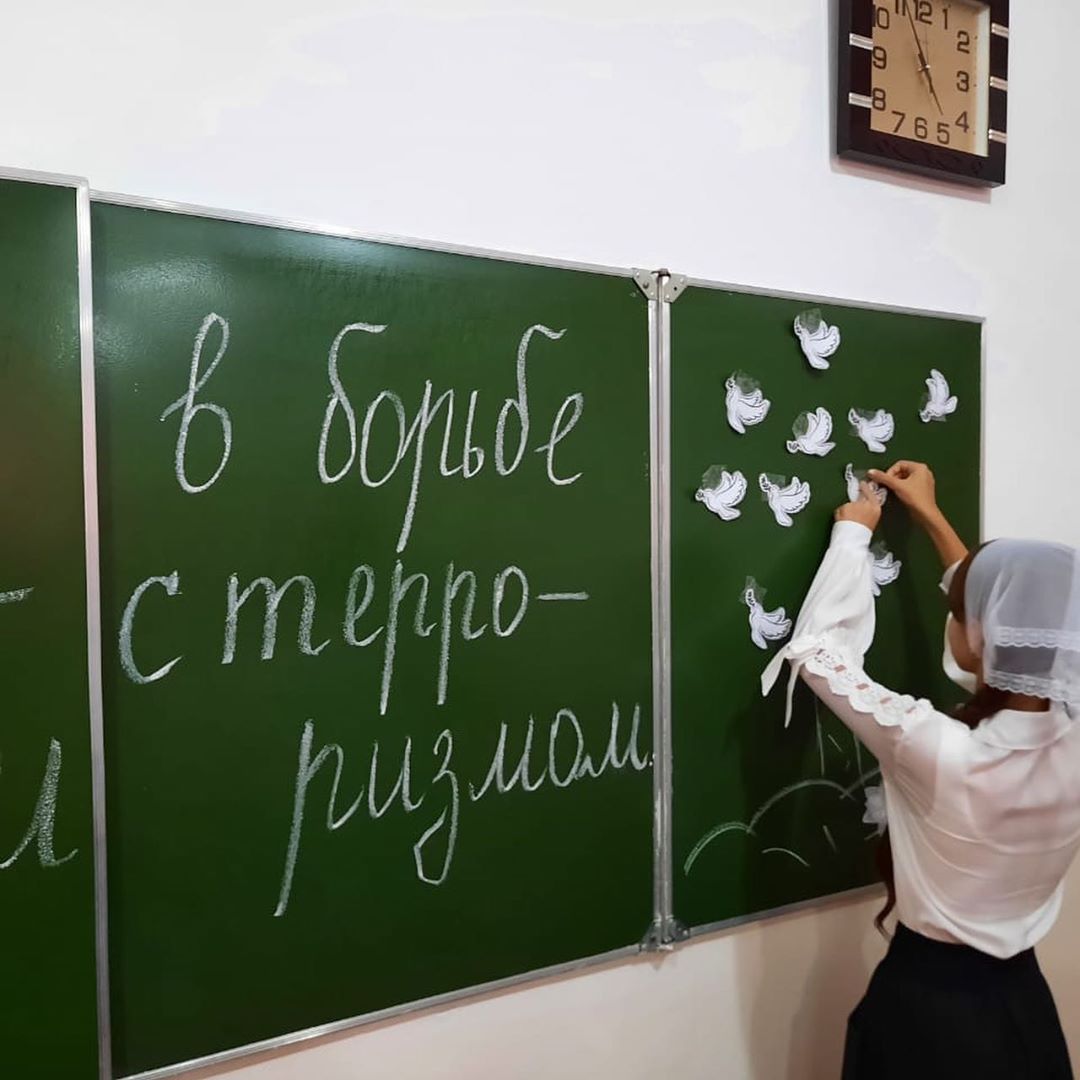 в борьбе
с терро-
ризмом.
10 11 12 1
9 2
8 3
7 6 5 4